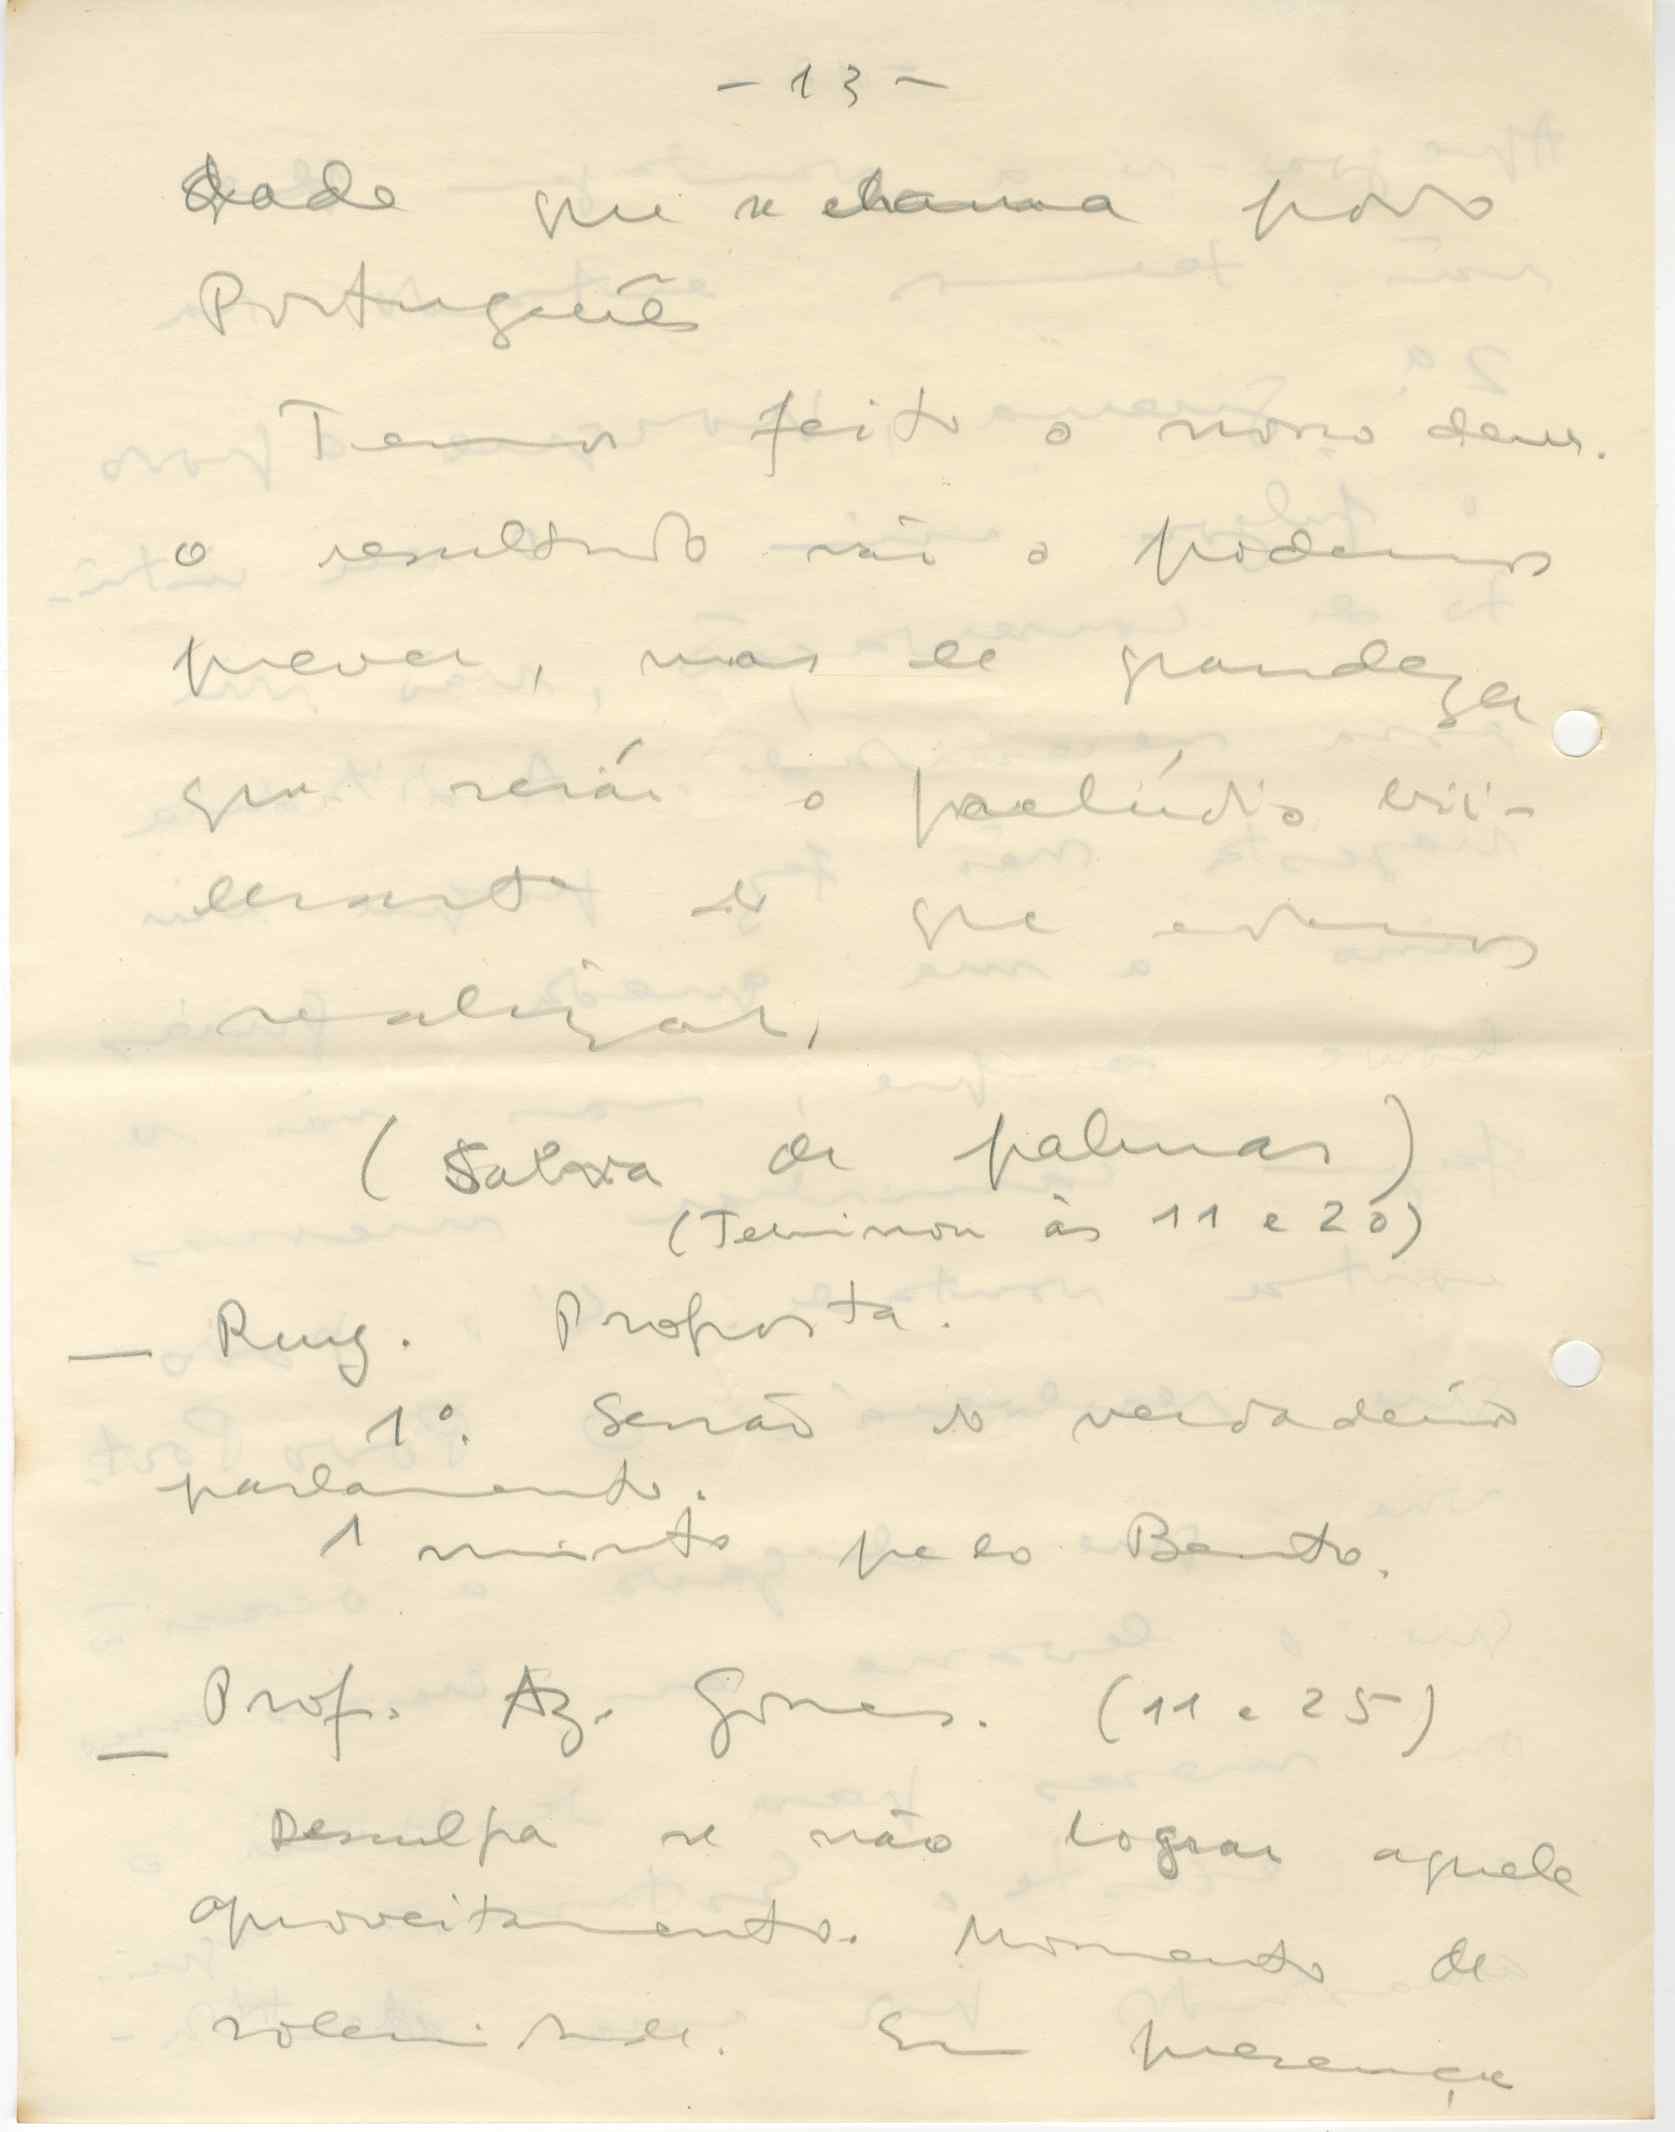 - 13 -
dade que se chama povo
Português
Temos feito o nosso dever.
o resultado não o podemos
prever, mas de grandeza
que será o prelúdio bri-
lhante do que vamos
realizar,
(Salva de palmas)
(Terminou às 11 e 20)
— Ruy. Proposta.
1º. Sessão do verdadeiro
parlamento.
1 minuto pelo Bento.
— Prof. Az. Gomes. (11 e 25)
Desculpa se não lograr aquele
aproveitamento. Momento de
solenidade. Em presença